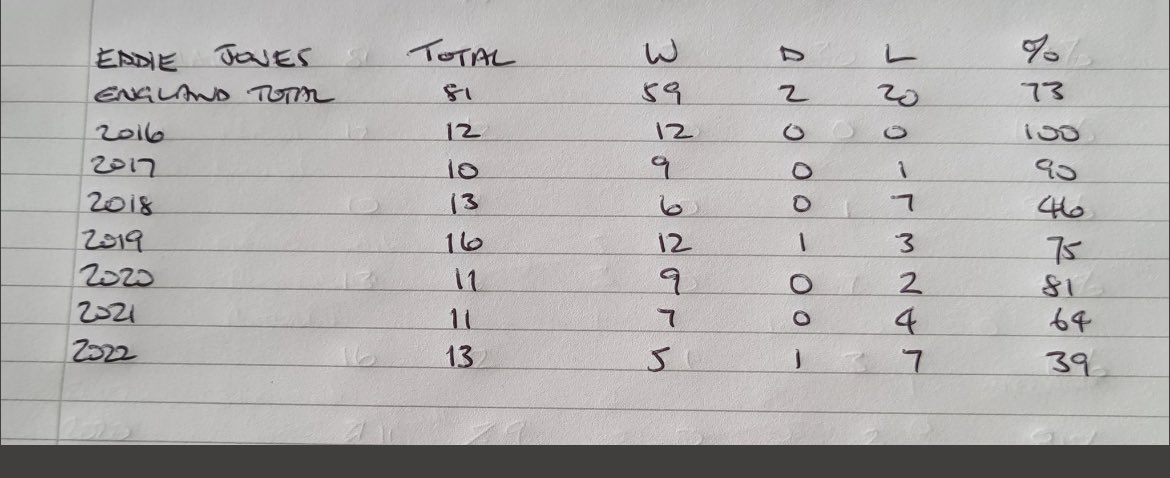 EDDIE JONES TOTAL W D L %
ENGLAND TOTAL 81 59 2 20 73
2016 12 12 0 0 100
2017 10 9 0 1 90
2018 13 6 0 7 46
2019 16 12 1 3 75
2020 11 9 0 2 81
2021 11 7 0 4 64
2022 13 5 1 7 39